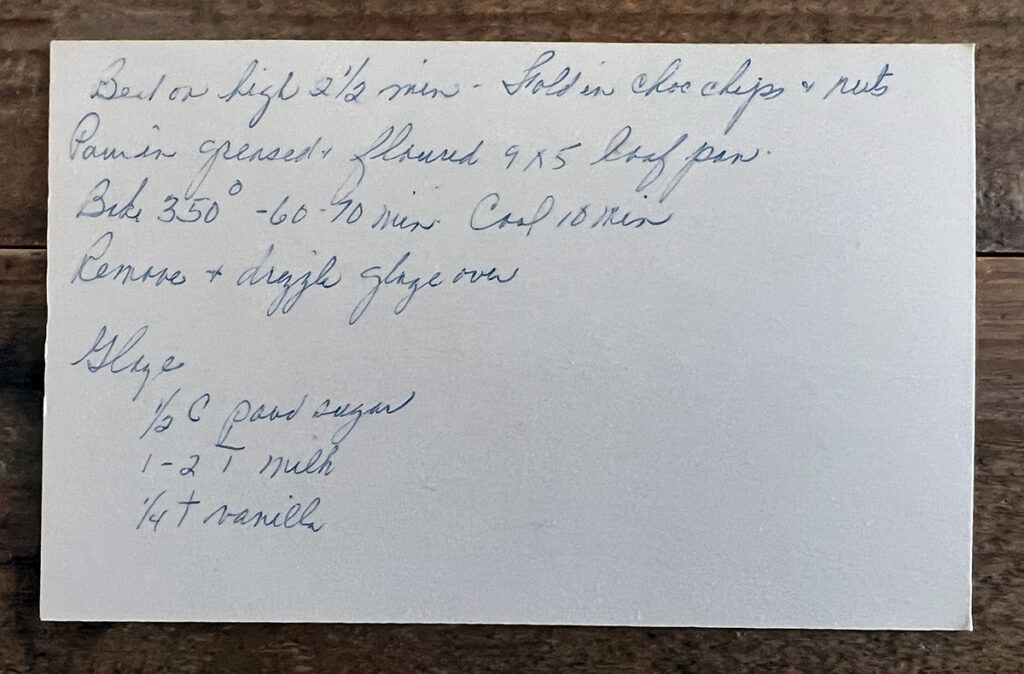 Beat on high 2 1/2 min - Fold in choc chips + nuts
Pour in greased + floured 9 x 5 loaf pan.
Bake 350° - 60-70 min. Cool 10 min
Remove + drizzle glaze over
Glaze
1/2 C powd sugar
1-2 T milk
1/4 t vanilla